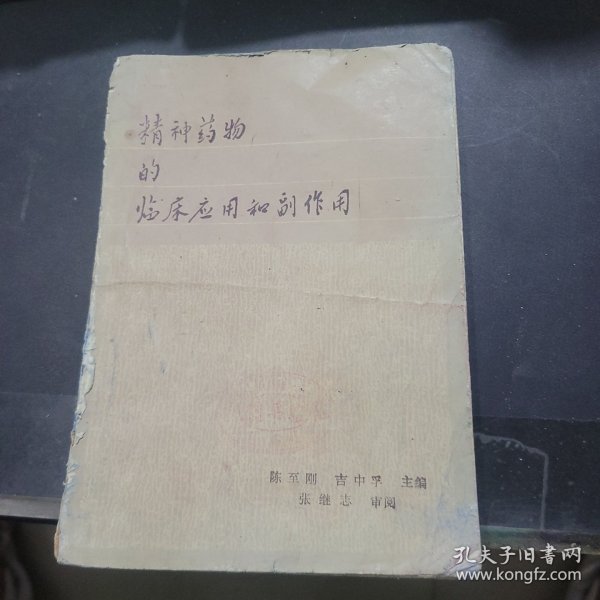 精神药物
的
临床应用和副作用
陈至刚 吉中孚 主编
张继志 审阅
孔夫子旧书网
www.kongfz.com